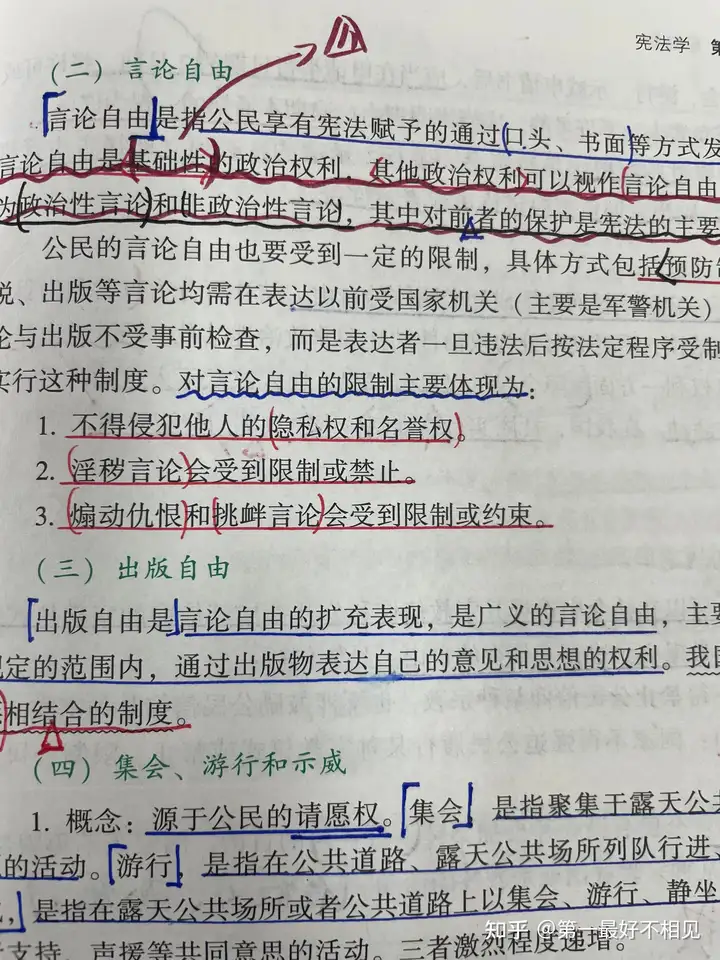 宪法学 第
（二）言论自由
言论自由是指公民享有宪法赋予的通过口头、书面等方式发
言论自由是基础性的政治权利，其他政治权利可以视作言论自由
为政治性言论和非政治性言论，其中对前者的保护是宪法的主要
公民的言论自由也要受到一定的限制，具体方式包括预防制
说、出版等言论均需在表达以前受国家机关（主要是军警机关）
论与出版不受事前检查，而是表达者一旦违法后按法定程序受制
实行这种制度。对言论自由的限制主要体现为：
1. 不得侵犯他人的隐私权和名誉权。
2. 淫秽言论会受到限制或禁止。
3. 煽动仇恨和挑衅言论会受到限制或约束。
（三）出版自由
出版自由是言论自由的扩充表现，是广义的言论自由，主要
规定的范围内，通过出版物表达自己的意见和思想的权利。我国
相结合的制度。
（四）集会、游行和示威
1. 概念：源于公民的请愿权。集会，是指聚集于露天公共
的活动。游行，是指在公共道路、露天公共场所列队行进、
，是指在露天公共场所或者公共道路上以集会、游行、静坐
支持、声援等共同意思的活动。三者激烈程度递增。
知乎 @第一最好不相见